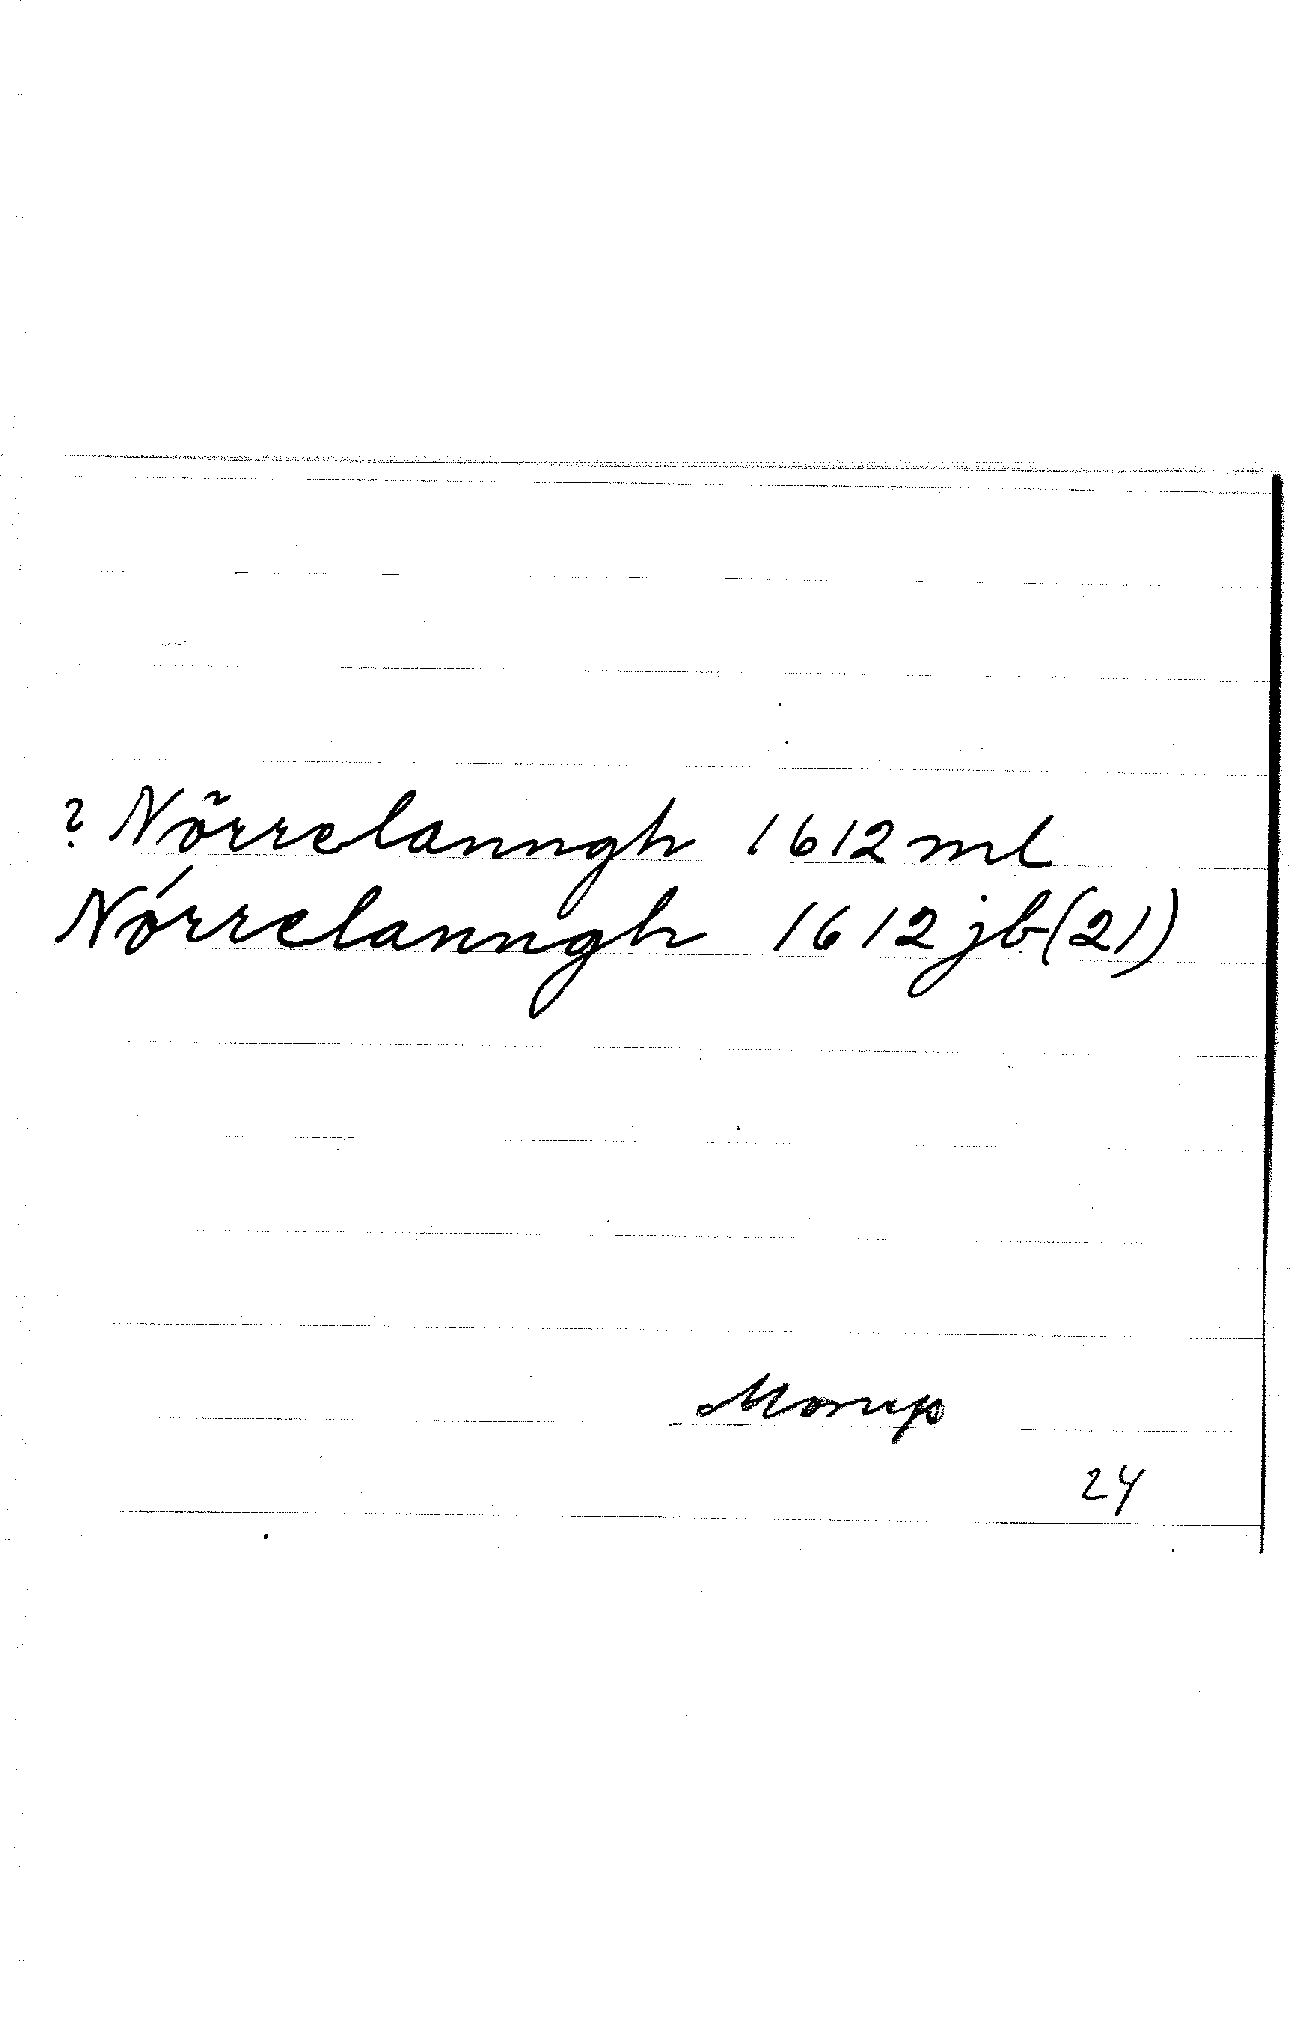 ? Nõrrelanngh 1612 ml
Nórrelanngh 1612 jb (21)
Morup
24